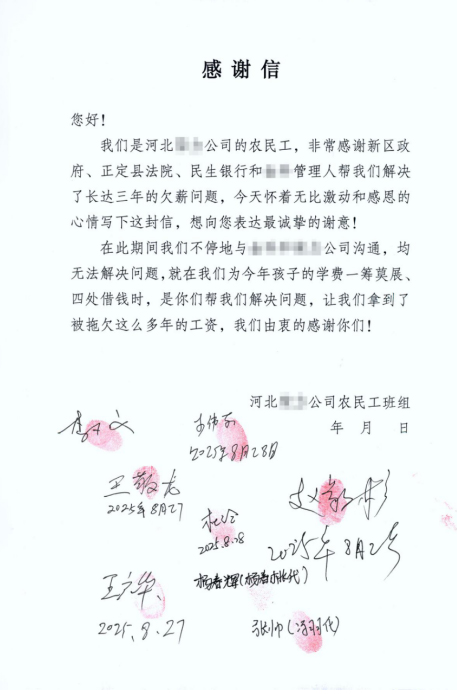 感谢信
您好！
我们是河北公司的农民工，非常感谢新区政
府、正定县法院、民生银行和管理人帮我们解决
了长达三年的欠薪问题，今天怀着无比激动和感恩的
心情写下这封信，想向您表达最诚挚的谢意！
在此期间我们不停地与公司沟通，均
无法解决问题，就在我们为今年孩子的学费一筹莫展、
四处借钱时，是你们帮我们解决问题，让我们拿到了
被拖欠这么多年的工资，我们由衷的感谢你们！
河北公司农民工班组
年 月 日
2025年8月28日
王敬龙
2025年8月27
杜会
2025.8.28
2025年8月2
王广华
杨春辉(杨春代)
2025.8.27
张帅(冯羽代)